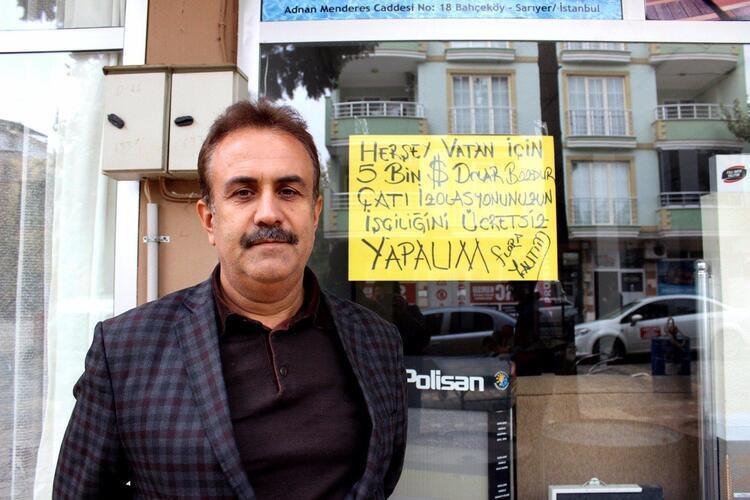 Adnan Menderes Caddesi No: 18 Bahçeköy - Sarıyer/ İstanbul
HERŞEY VATAN İÇİN
5 BİN $ DOLAR BOZDUR
ÇATI İZOLASYONUNUZUN
İŞÇİLİĞİNİ ÜCRETSİZ
YAPALIM
YALITIM
Polisan